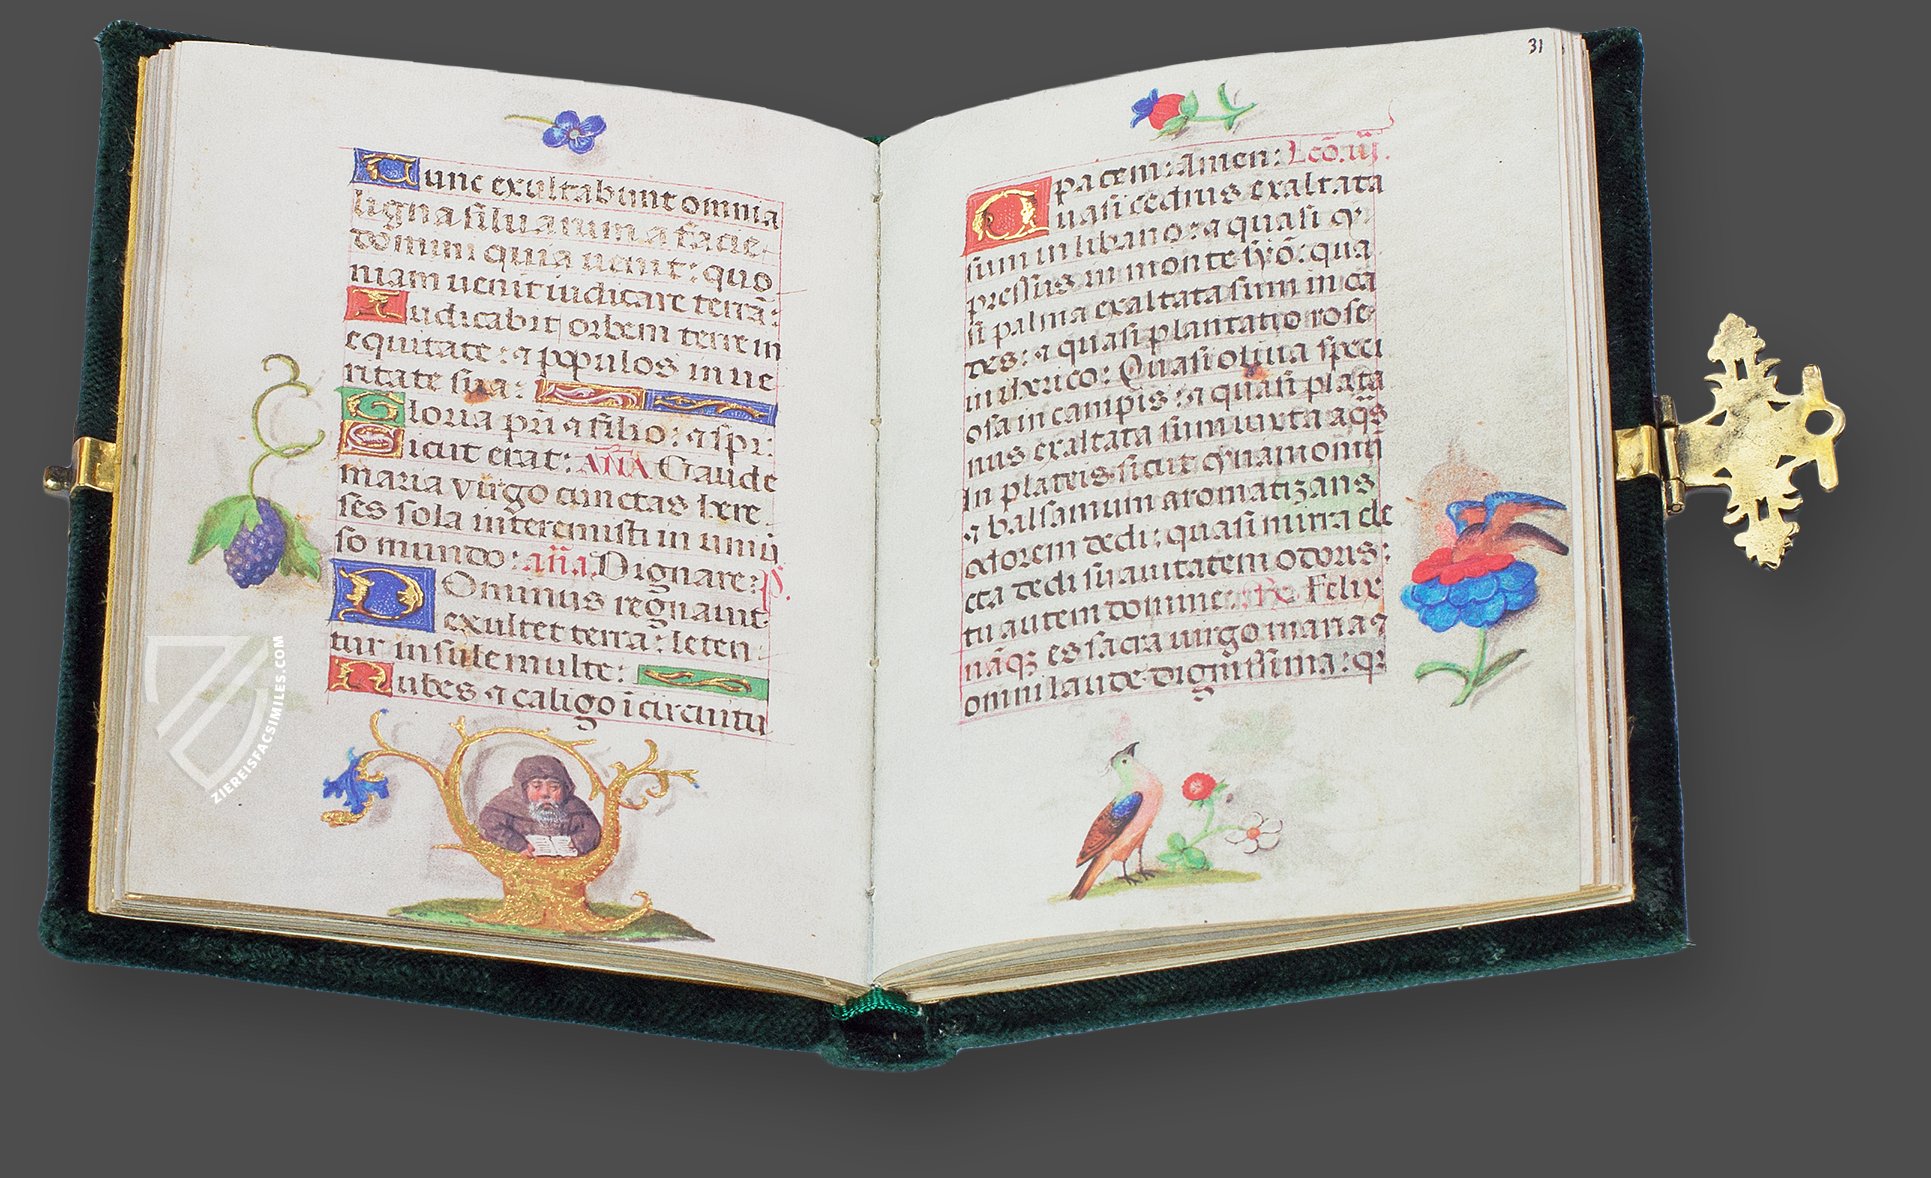 Tunc exultabunt omnia
ligna siluarum a facie
domini quia uenit: quo
niam uenit iudicare terrā:
Iudicabit orbem terre in
equitate: ⁊ populos in ue
ritate sua:
Gloria pr̄i ⁊ filio: ⁊ spr̄:
Sicut erat: Añā Gaude
maria virgo cunctas here
ses sola interemisti in uniu̅
so mundo: añā Dignare: ps.
Dominus regnauit
exultet terra: leten
tur insule multe:
Nubes ⁊ caligo ī circuitu
31
pacem: Amen: Lcō.iij.
Quasi cedrus exaltata
sum in libano: ⁊ quasi cy
pressus in monte syō: qua
si palma exaltata sum in ca
des: ⁊ quasi plantatio rose
in iherico: Quasi oliua speci
osa in campis: ⁊ quasi plata
nus exaltata sum iuxta aqs
in plateis: sicut cynamomū
⁊ balsamum aromatizans
odorem dedi: quasi mirra ele
cta dedi suauitatem odoris:
tu autem domine: R̄ Felix
nāqȝ es sacra uirgo maria ⁊
omni laude dignissima: qr
ZIEREISFACSIMILES.COM